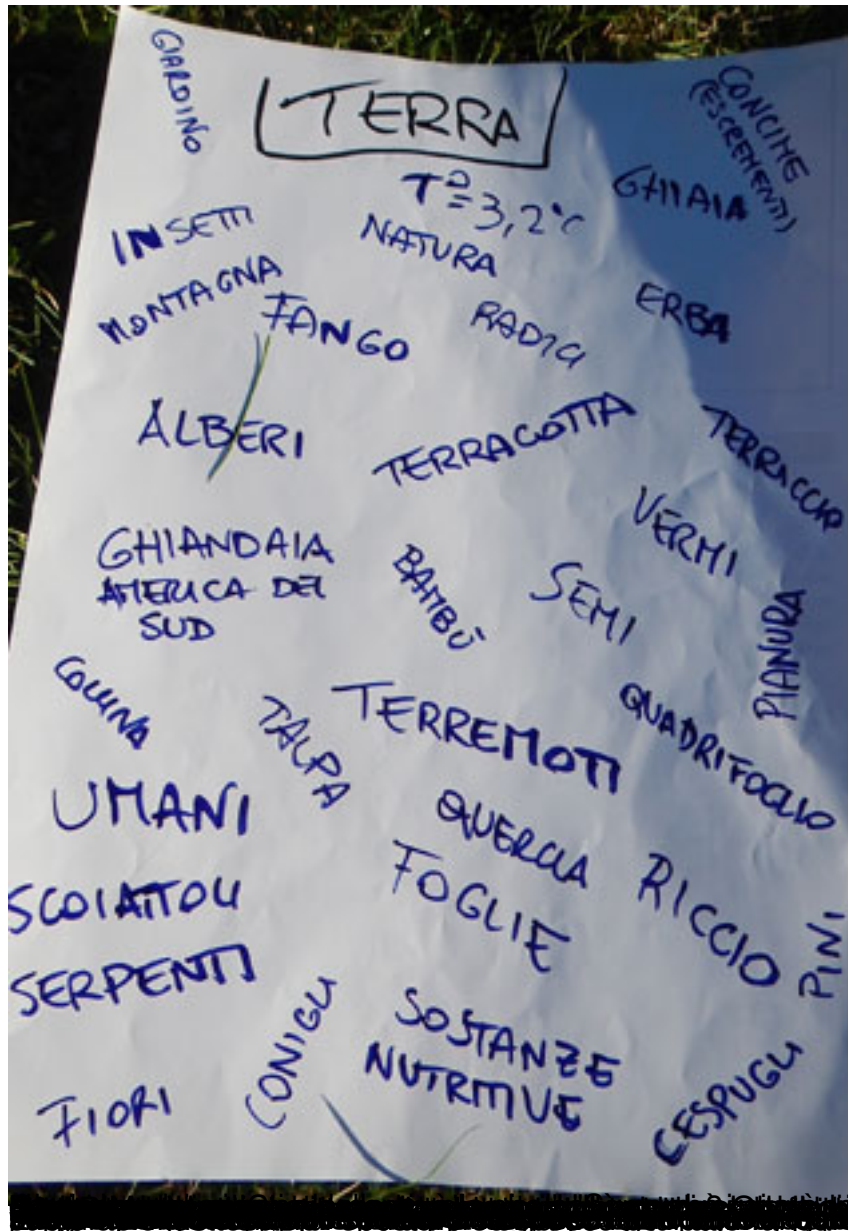 GIARDINO
TERRA
CONCIME
(ESCREMENTI)
T°=3,2°C
GHIAIA
INSETTI
NATURA
MONTAGNA
FANGO
RADICI
ERBA
ALBERI
TERRACOTTA
TERRICCIO
VERMI
GHIANDAIA
AMERICA DEL
SUD
BAMBÙ
SEMI
PIANURA
COLLINA
TALPA
TERREMOTI
QUADRIFOGLIO
UMANI
QUERCIA
FOGLIE
RICCIO
PINI
SCOIATTOLI
SERPENTI
CONIGLI
SOSTANZE
NUTRITIVE
CESPUGLI
FIORI